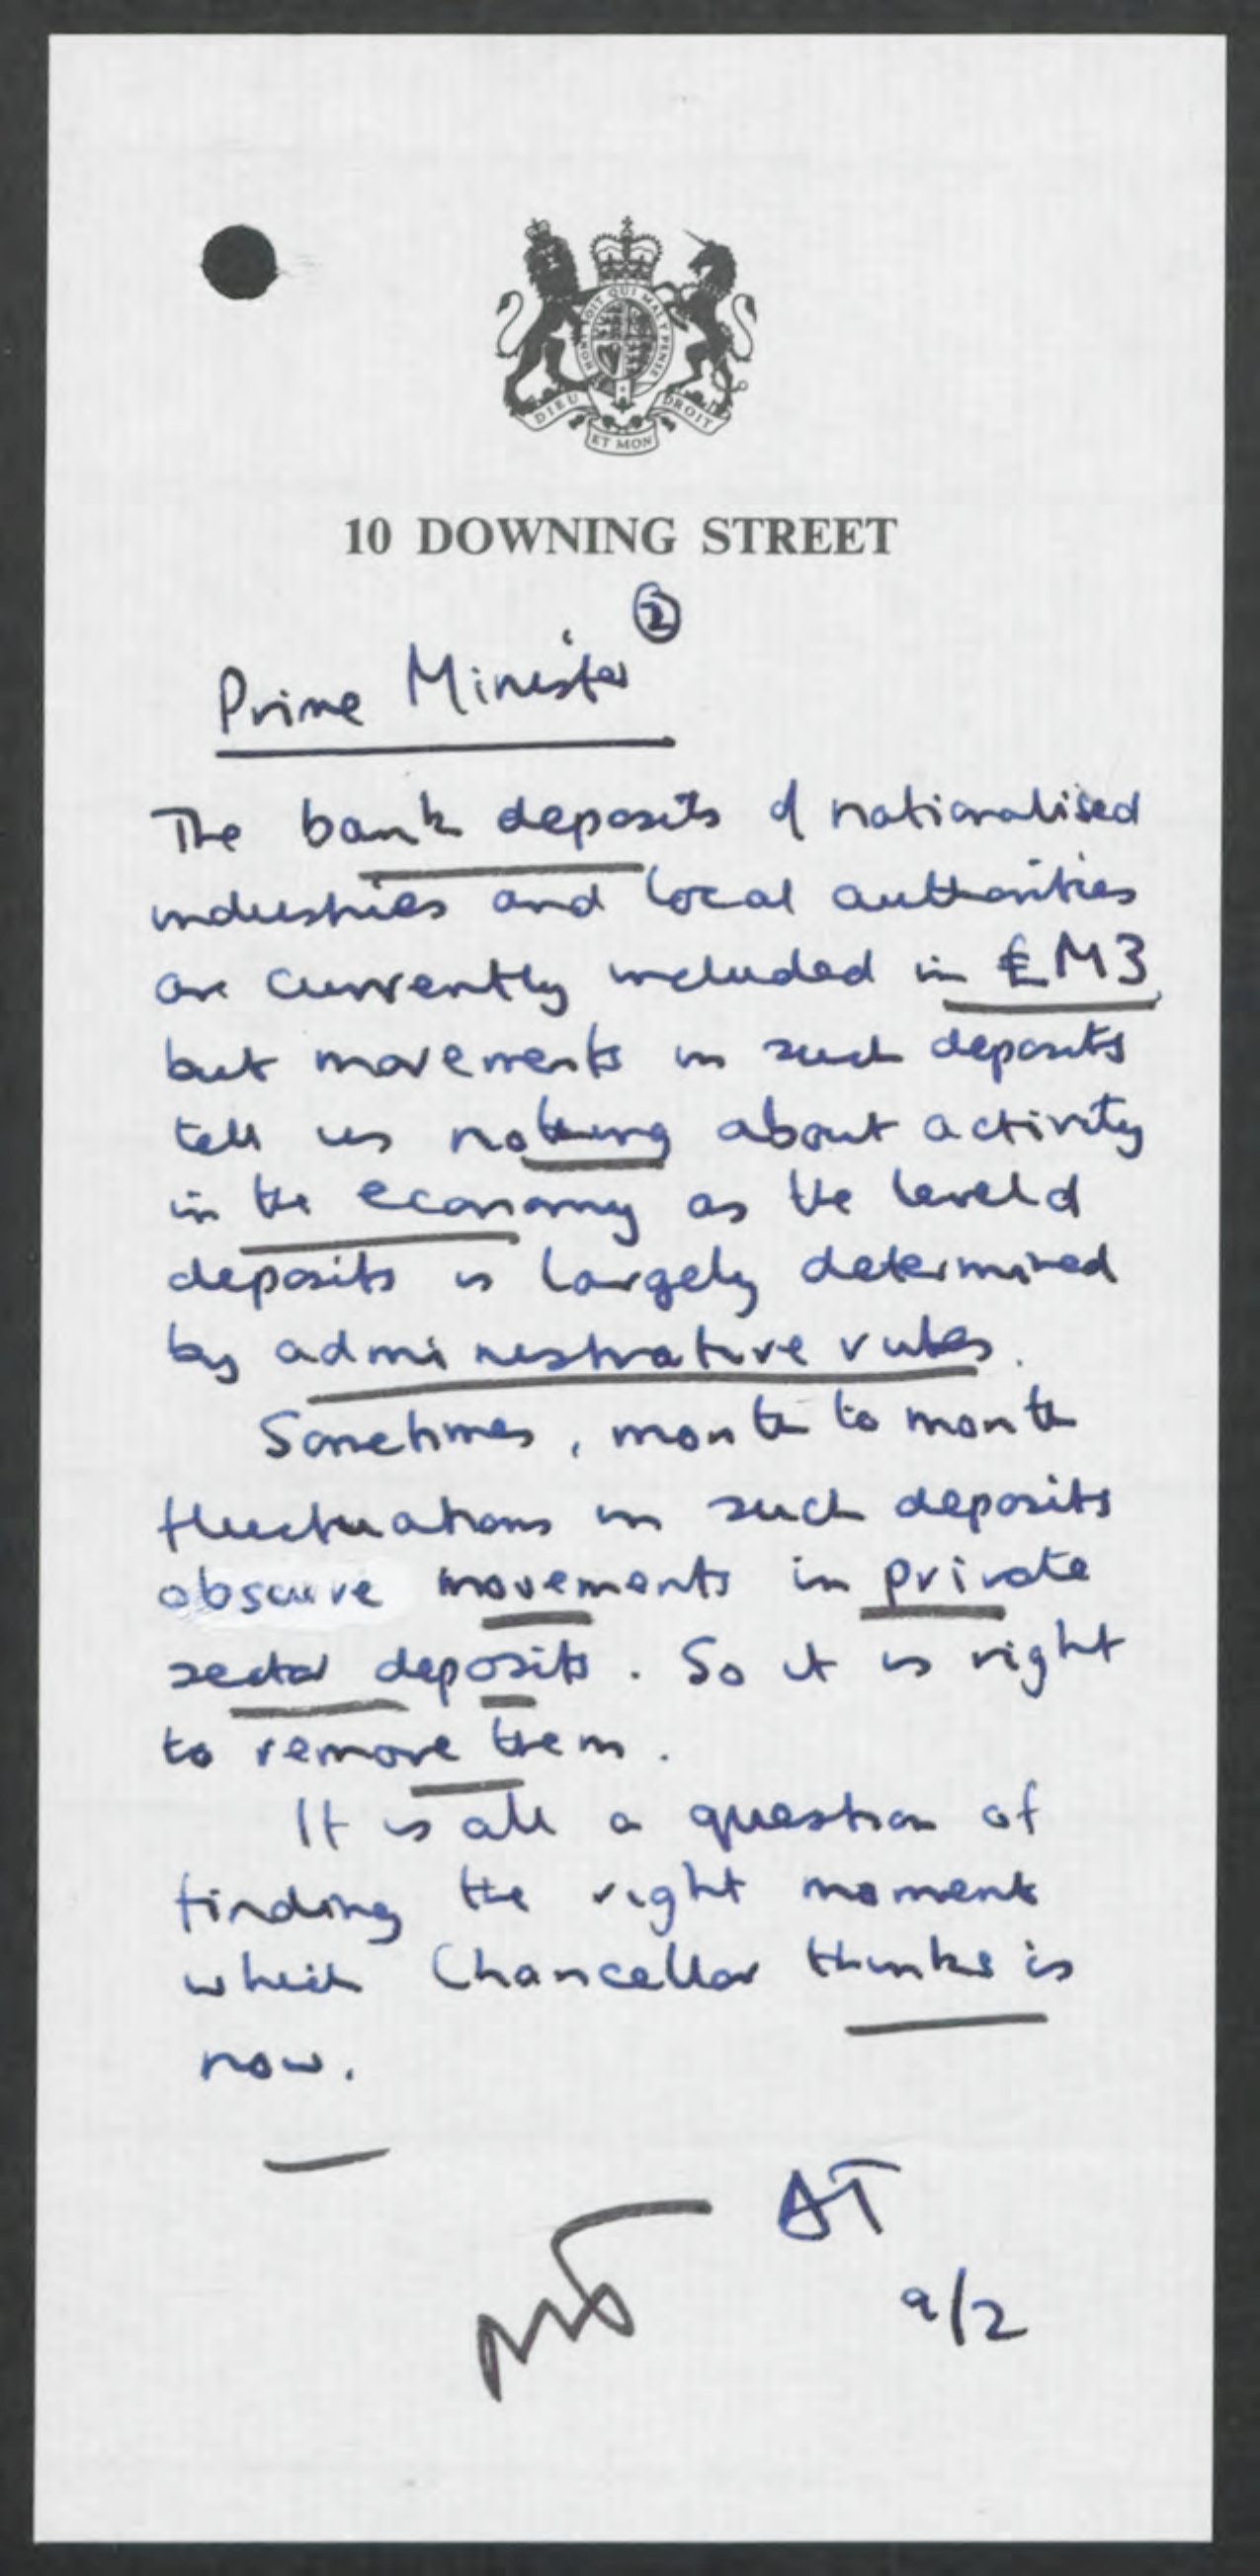 HONI SOIT QUI MAL Y PENSE
DIEU ET MON DROIT
10 DOWNING STREET
2
Prime Minister
The bank deposits of nationalised
industries and local authorities
are currently included in £M3
but movements in such deposits
tell us nothing about activity
in the economy as the level of
deposits is largely determined
by administrative rules.
Sometimes, month to month
fluctuations in such deposits
obscure movements in private
sector deposits. So it is right
to remove them.
It is all a question of
finding the right moment
which Chancellor thinks is
now.
AT
mt
9/2